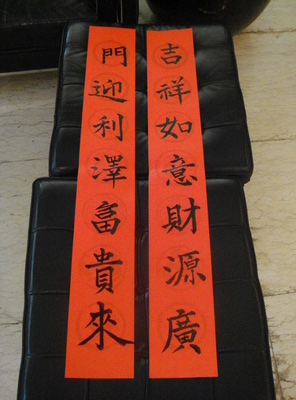 吉祥如意財源廣
門迎利澤富貴來